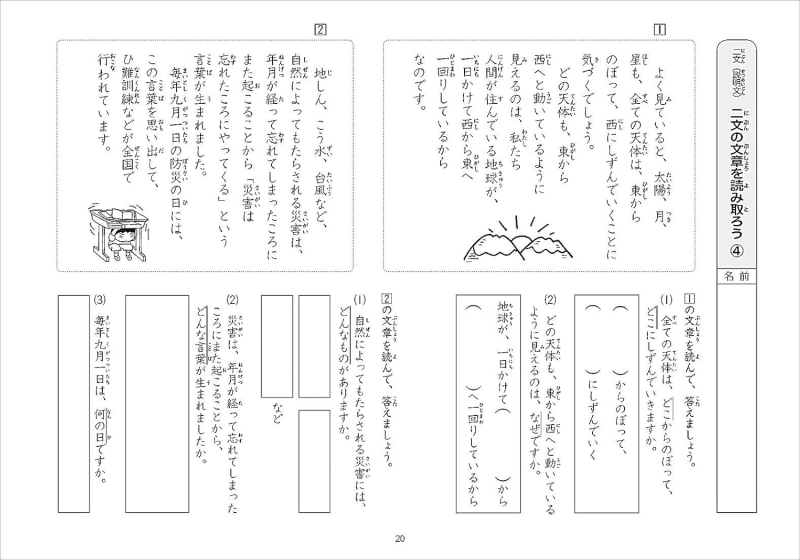 二文（説明文）
二文の文章を読み取ろう ④
名前
1
よく見ていると、太陽、月、
星も、全ての天体は、東から
のぼって、西にしずんでいくことに
気づくでしょう。
どの天体も、東から
西へと動いているように
見えるのは、私たち
人間が住んでいる地球が、
一日かけて西から東へ
一回りしているから
なのです。
1の文章を読んで、答えましょう。
(1) 全ての天体は、どこからのぼって、
どこにしずんでいきますか。
（　　）からのぼって、
（　　）にしずんでいく
(2) どの天体も、東から西へと動いている
ように見えるのは、なぜですか。
地球が、一日かけて（　　）から
（　　）へ一回りしているから
2
地しん、こう水、台風など、
自然によってもたらされる災害は、
年月が経って忘れてしまったころに
また起こることから「災害は
忘れたころにやってくる」という
言葉が生まれました。
毎年九月一日の防災の日には、
この言葉を思い出して、
ひ難訓練などが全国で
行われています。
2の文章を読んで、答えましょう。
(1) 自然によってもたらされる災害には、
どんなものがありますか。
など
(2) 災害は、年月が経って忘れてしまった
ころにまた起こることから、
どんな言葉が生まれましたか。
(3) 毎年九月一日は、何の日ですか。
20